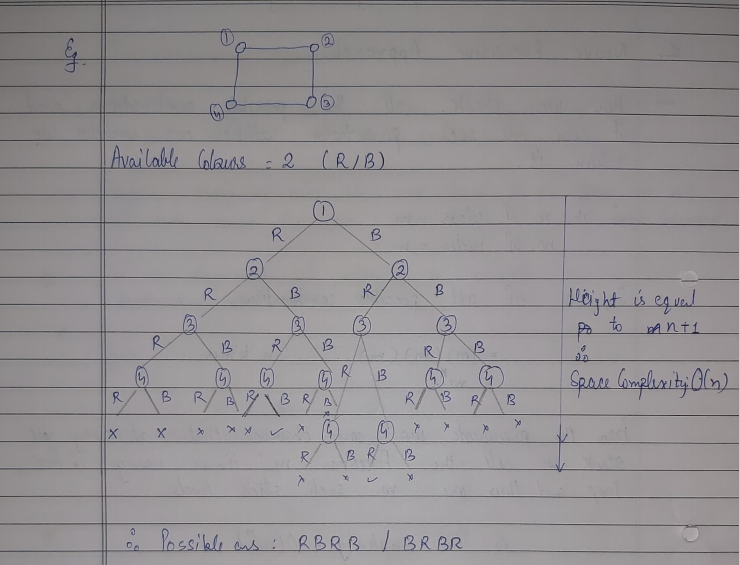 Eg.
① ②
④ ③
Available Colours = 2 (R/B)
①
R B
② ②
R B R B
③ ③ ③ ③
R B R B R B R B
④ ④ ④ ④ ④ ④
R B R B R B R B R B R B
x x x x x ✓ x x x x x x
④ ④
R B R B
x x ✓ x
Height is equal
to n+1
∴
Space Complexity: O(n)
∴ Possible ans : RBRB / BRBR